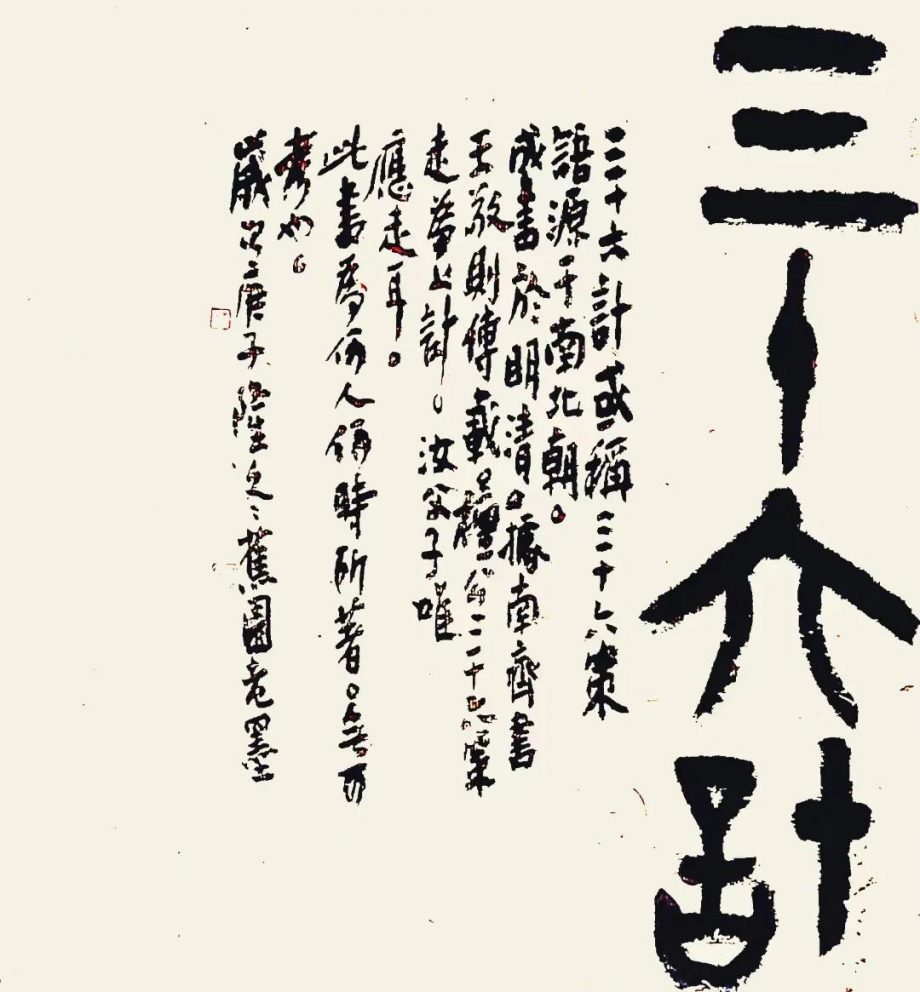 三十六計
三十六計或稱三十六策
語源于南北朝。
成書於明清。據南齊書
王敬則傳載：檀公三十六策
走為上計。汝父子唯
應走耳。
此書為何人何時所著。無可
考也。
歲次庚子隆冬蕉園老墨